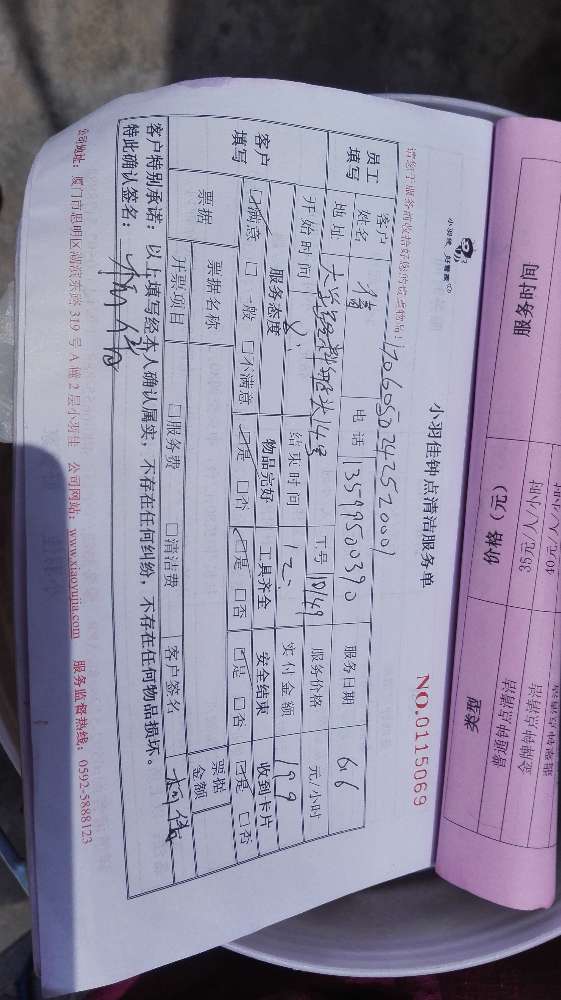 服务时间
价格（元）
类型
35元/人/小时
普通钟点清洁
40元/人/小时
金牌钟点清洁
小羽佳
小羽佳钟点清洁服务单
NO.0115069
请您于服务前收拾好您的贵重物品！
1706050242520001
员工填写
客户姓名
电话
13599500390
服务日期
6.6
地址
工号
10149
服务价格
元/小时
开始时间
8:
结束时间
12:
实付金额
199
客户填写
服务态度
物品完好
工具齐全
安全结束
收到卡片
☑满意 □一般 □不满意
☑是 □否
☑是 □否
☑是 □否
☑是 □否
票据
票据名称
票据金额
开票项目
□服务费 □清洁费
客户签名
客户特别承诺：以上填写经本人确认属实，不存在任何纠纷，不存在任何物品损坏。
特此确认签名：
公司地址：厦门市思明区湖滨东路 319 号 A 幢 2 层小羽佳 公司网站：www.xiaoyujia.com 服务监督热线：0592-5888123